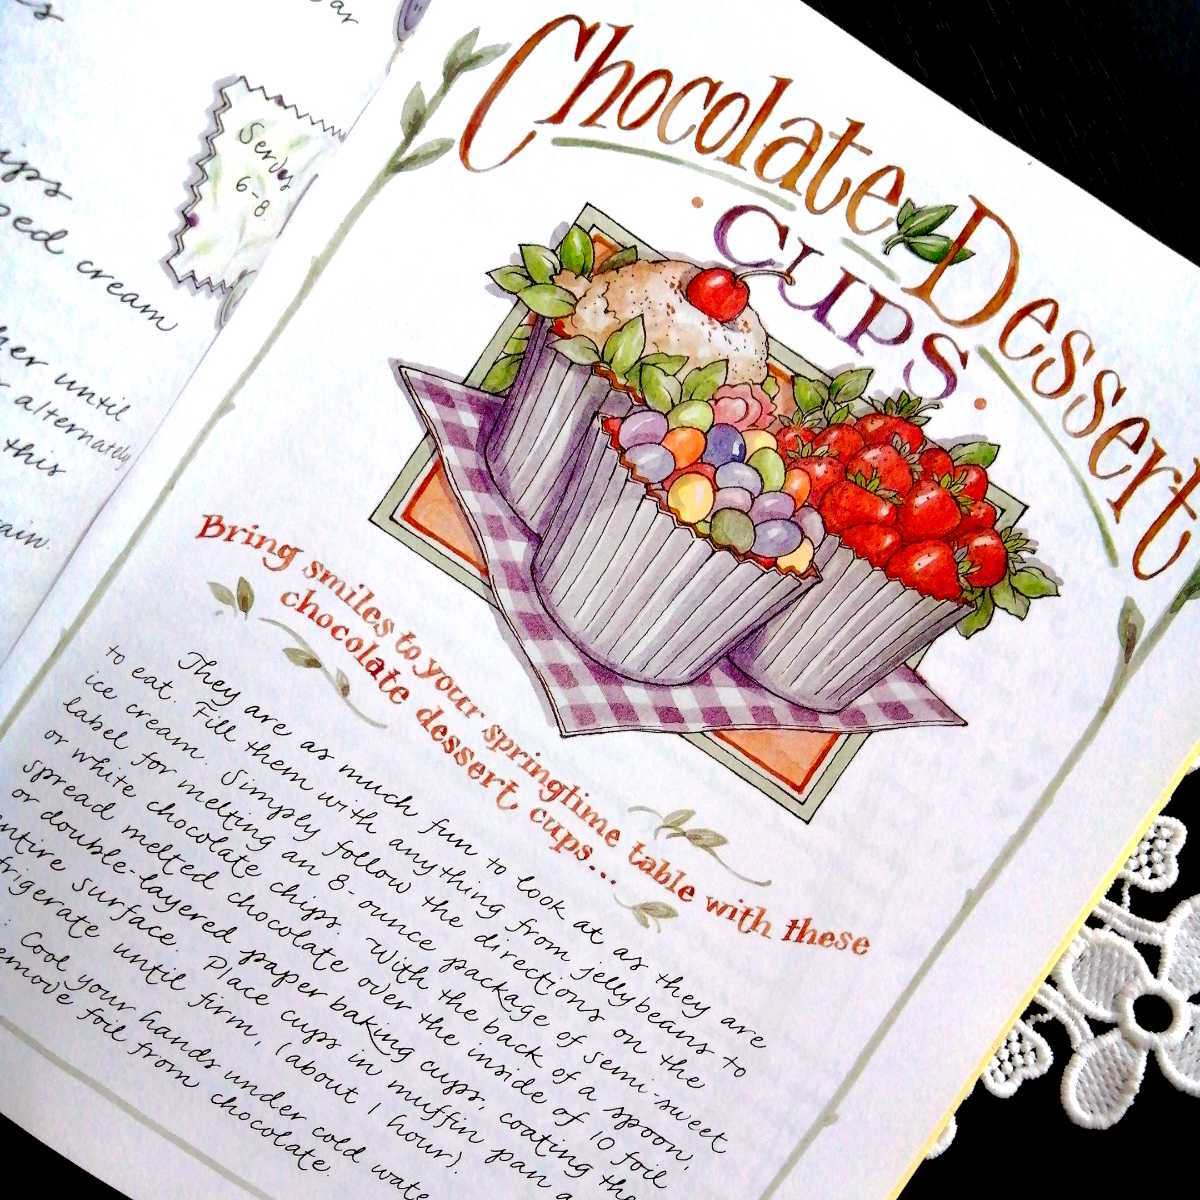 Serves
6-8.
cream
until
alternately
this
Chocolate Dessert
CUPS
Bring smiles to your springtime table with these
chocolate dessert cups...
They are as much fun to look at as they are
to eat. Fill them with anything from jellybeans to
ice cream. Simply follow the directions on the
label for melting an 8-ounce package of semi-sweet
or white chocolate chips. With the back of a spoon,
spread melted chocolate over the inside of 10 foil
or double-layered paper baking cups, coating the
entire surface. Place cups in muffin pan
until firm, (about 1 hour).
Cool your hands under cold
foil from chocolate.